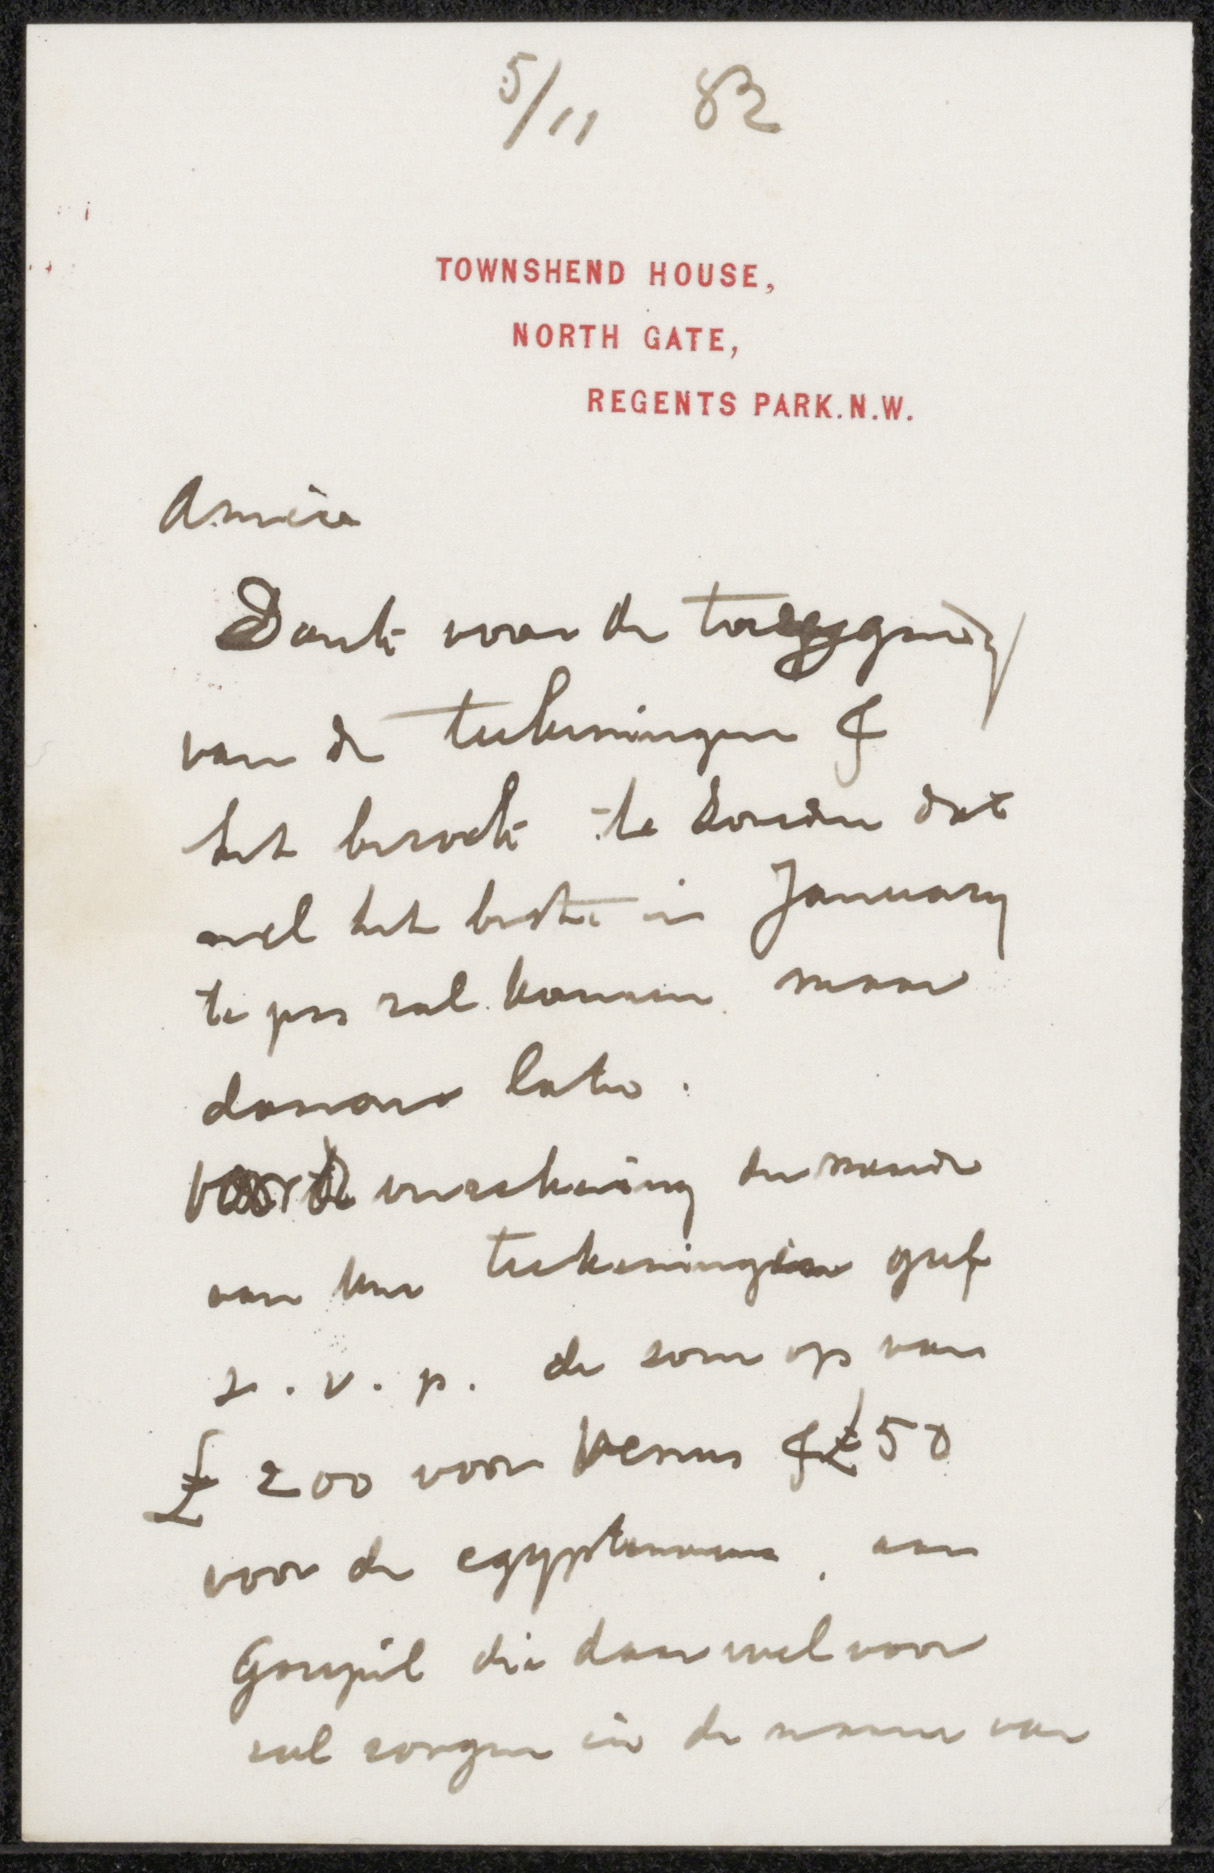 5/11 82
TOWNSHEND HOUSE,
NORTH GATE,
REGENTS PARK.N.W.
Amice
Dank voor de
van de teekeningen &
het bezoek te dat
wel het beste in January
te pas zal komen maar
daarover later.
voor de verzekering der waarde
van hun teekeningen geef
s. v. p. de som op van
£ 200 voor Venus & £ 50
voor de egyptenaren, aan
Goupil die daar wel voor
zal zorgen in de naam van